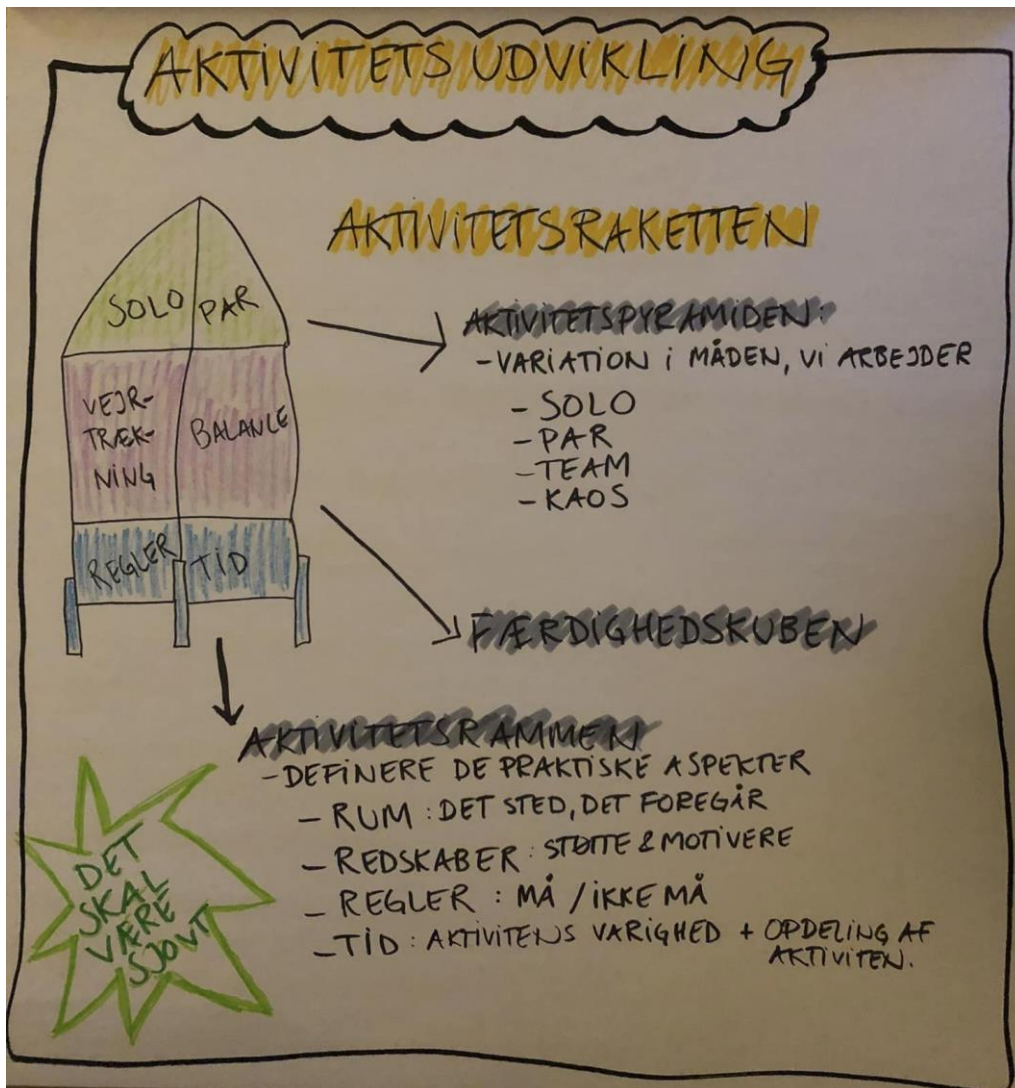 AKTIVITETSUDVIKLING
AKTIVITETSRAKETTEN
SOLO PAR
VEJR-
TRÆK-
NING
BALANCE
REGLER TID
AKTIVITETSPYRAMIDEN:
- VARIATION i MÅDEN, Vi ARBEJDER
- SOLO
- PAR
- TEAM
- KAOS
FÆRDIGHEDSKUBEN
AKTIVITETSRAMMEN
- DEFINERE DE PRAKTISKE ASPEKTER
- RUM : DET STED, DET FOREGÅR
- REDSKABER : STØTTE & MOTIVERE
- REGLER : MÅ / IKKE MÅ
- TID : AKTIVITENS VARIGHED + OPDELING AF
AKTIVITEN.
DET
SKAL
VÆRE
SJOVT